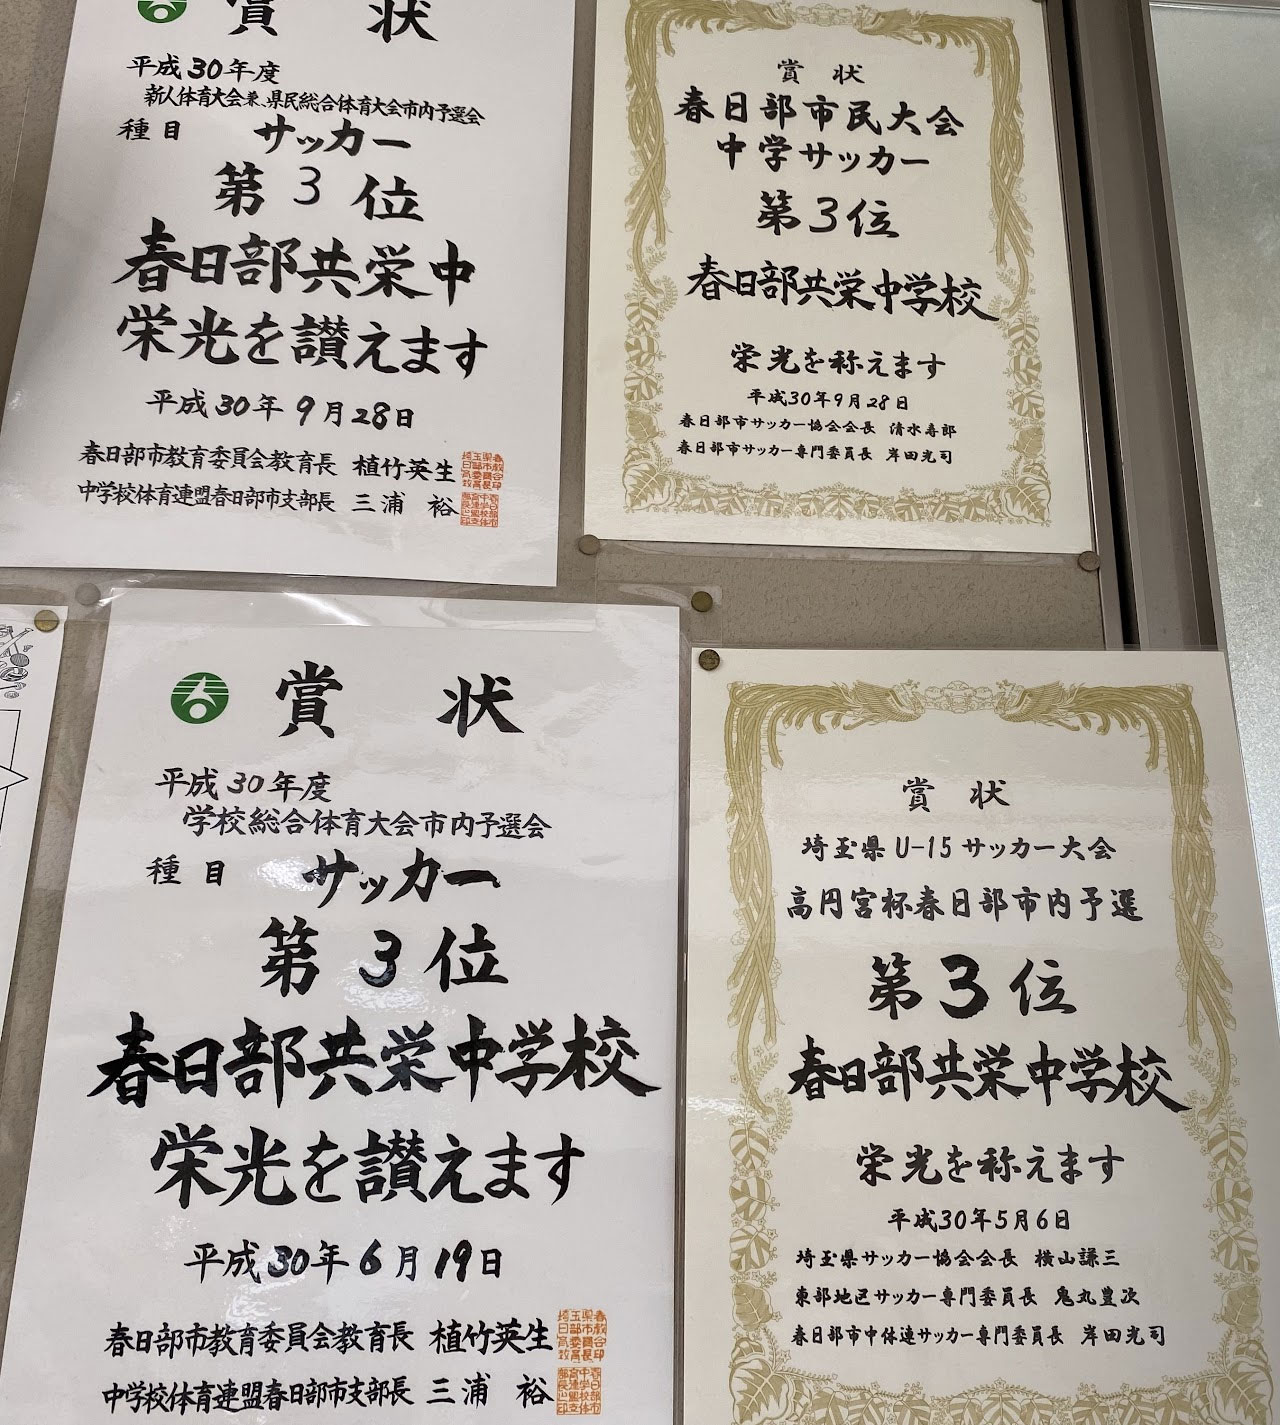 賞状
平成30年度
新人体育大会兼、県民総合体育大会市内予選会
種目 サッカー
第3位
春日部共栄中
栄光を讃えます
平成30年9月28日
春日部市教育委員会教育長 植竹英生
中学校体育連盟春日部市支部長 三浦 裕
賞状
春日部市民大会
中学サッカー
第3位
春日部共栄中学校
栄光を称えます
平成30年9月28日
春日部市サッカー協会会長 清水寿郎
春日部市サッカー専門委員長 岸田光司
賞状
平成30年度
学校総合体育大会市内予選会
種目 サッカー
第3位
春日部共栄中学校
栄光を讃えます
平成30年6月19日
春日部市教育委員会教育長 植竹英生
中学校体育連盟春日部市支部長 三浦 裕
賞状
埼玉県U-15サッカー大会
高円宮杯春日部市内予選
第3位
春日部共栄中学校
栄光を称えます
平成30年5月6日
埼玉県サッカー協会会長 横山謙三
東部地区サッカー専門委員長 鬼丸豊次
春日部市中体連サッカー専門委員長 岸田光司